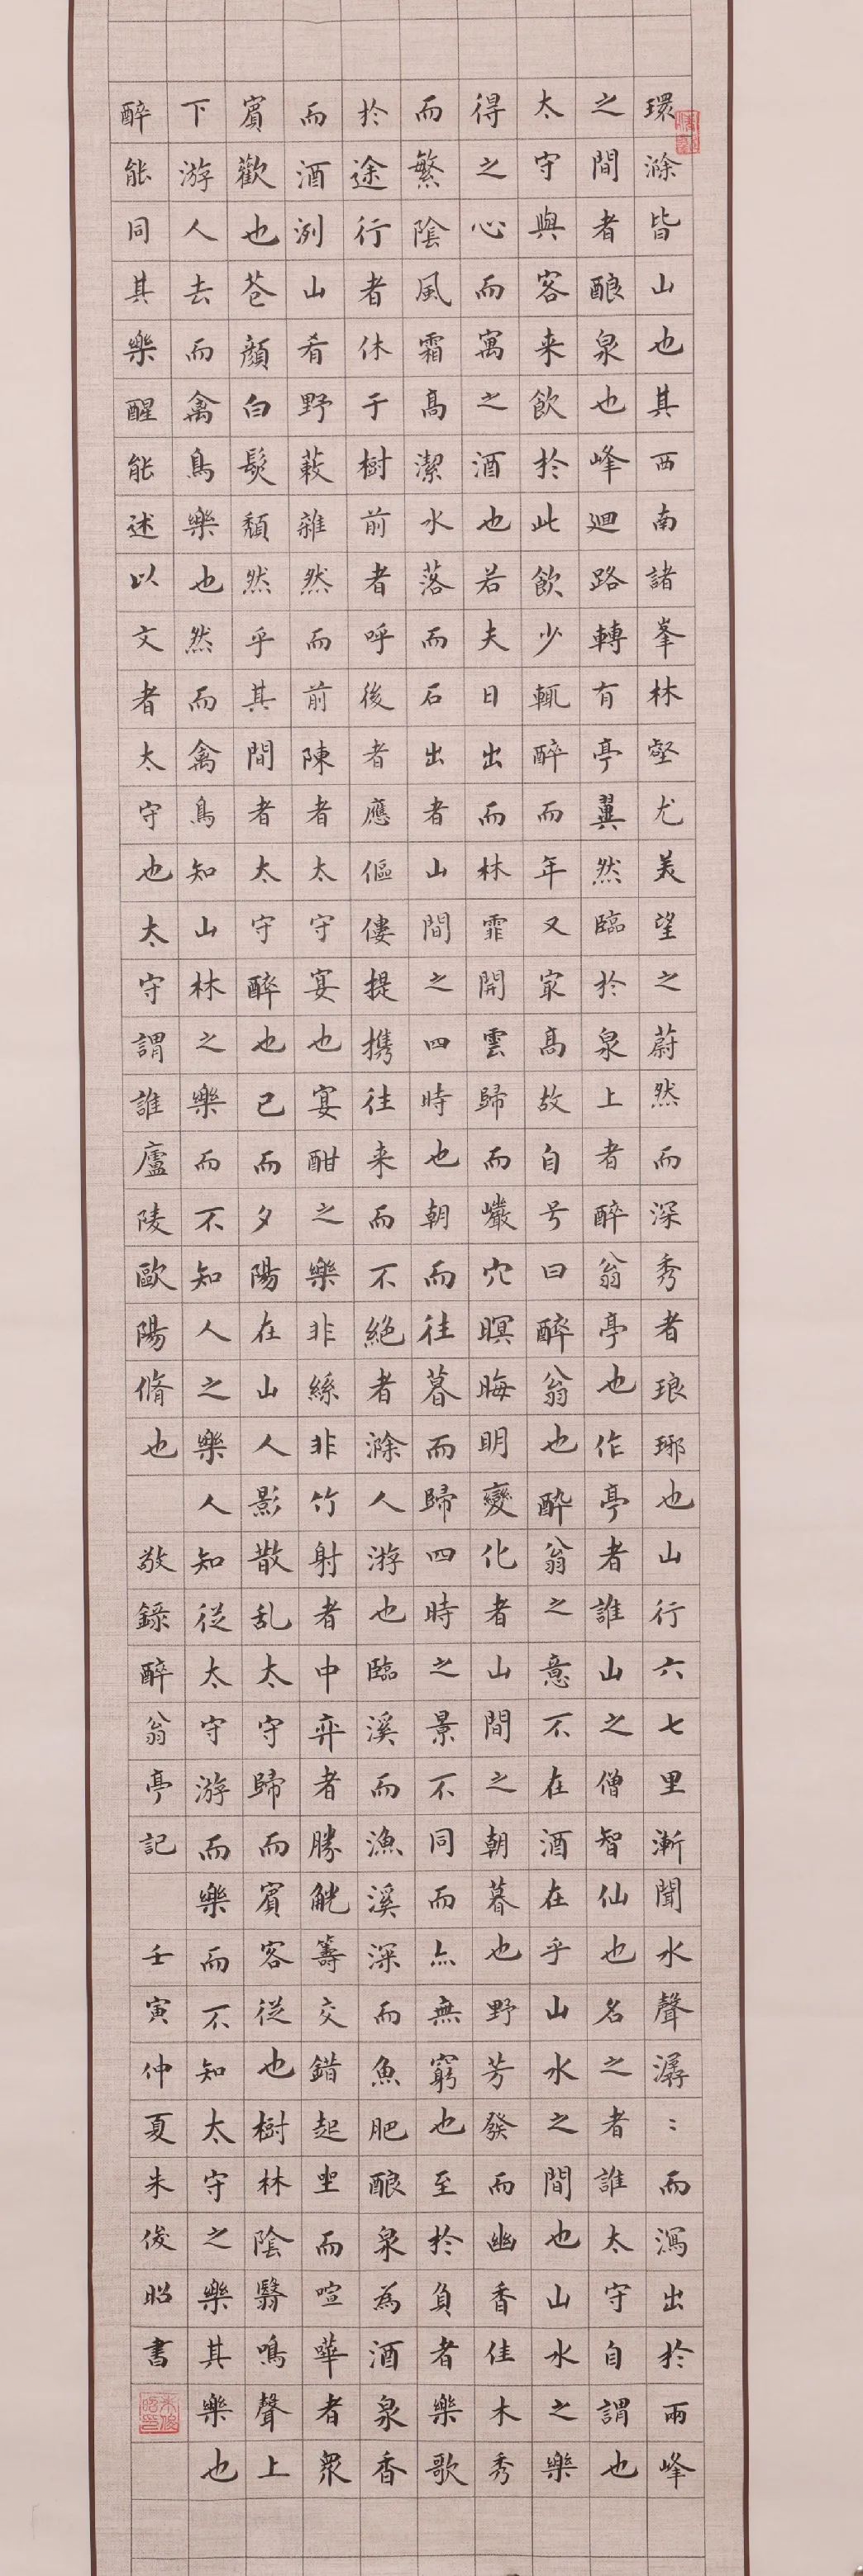 環滁皆山也其西南諸峯林壑尤美望之蔚然而深秀者琅琊也山行六七里漸聞水聲潺〻而瀉出於兩峰
之間者酿泉也峰迴路轉有亭翼然臨於泉上者醉翁亭也作亭者誰山之僧智仙也名之者誰太守自謂也
太守與客来飲於此飲少輒醉而年又冣高故自号曰醉翁也醉翁之意不在酒在乎山水之間也山水之樂
得之心而寓之酒也若夫日出而林霏開雲歸而巖穴暝晦明變化者山間之朝暮也野芳發而幽香佳木秀
而繁陰風霜高潔水落而石出者山間之四時也朝而往暮而歸四時之景不同而亦無窮也至於負者樂歌
於途行者休于樹前者呼後者應傴僂提携往来而不絕者滁人游也臨溪而漁溪深而魚肥酿泉為酒泉香
而酒洌山肴野蔌雜然而前陳者太守宴也宴酣之樂非絲非竹射者中弈者勝觥籌交錯起坐而喧嘩者衆
賓歡也苍顏白髮頹然乎其間者太守醉也已而夕陽在山人影散乱太守歸而賓客從也樹林陰翳鳴聲上
下游人去而禽鳥樂也然而禽鳥知山林之樂而不知人之樂人知從太守游而樂而不知太守之樂其樂也
醉能同其樂醒能述以文者太守也太守謂誰廬陵歐陽脩也 敬錄醉翁亭記 壬寅仲夏朱俊昭書
朱俊昭印